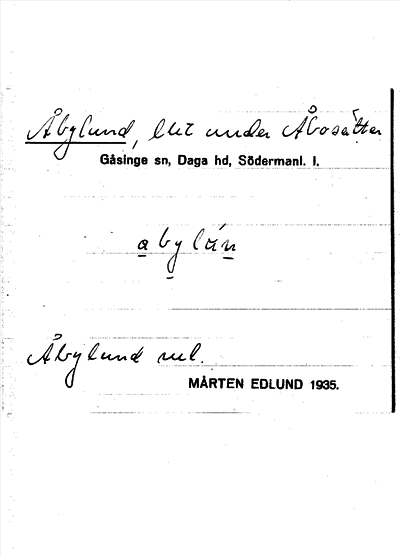 Åbylund, lht under Åbosätter
Gåsinge sn, Daga hd, Södermanl. l.
Åbylund rel.
MÅRTEN EDLUND 1935.